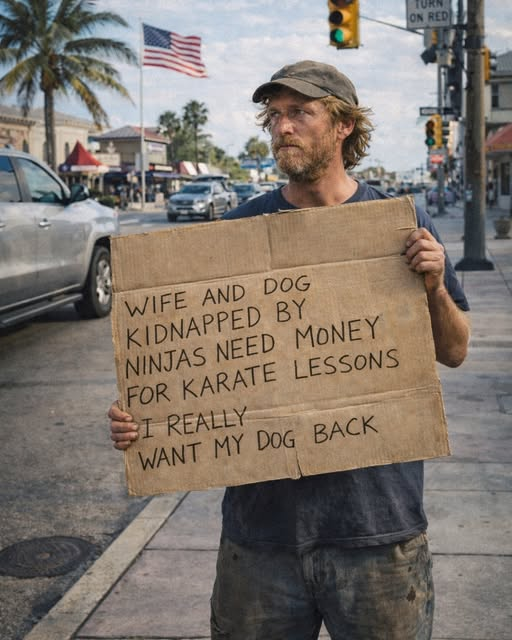 TURN
ON RED
WIFE AND DOG
KIDNAPPED BY
NINJAS NEED MONEY
FOR KARATE LESSONS
I REALLY
WANT MY DOG BACK